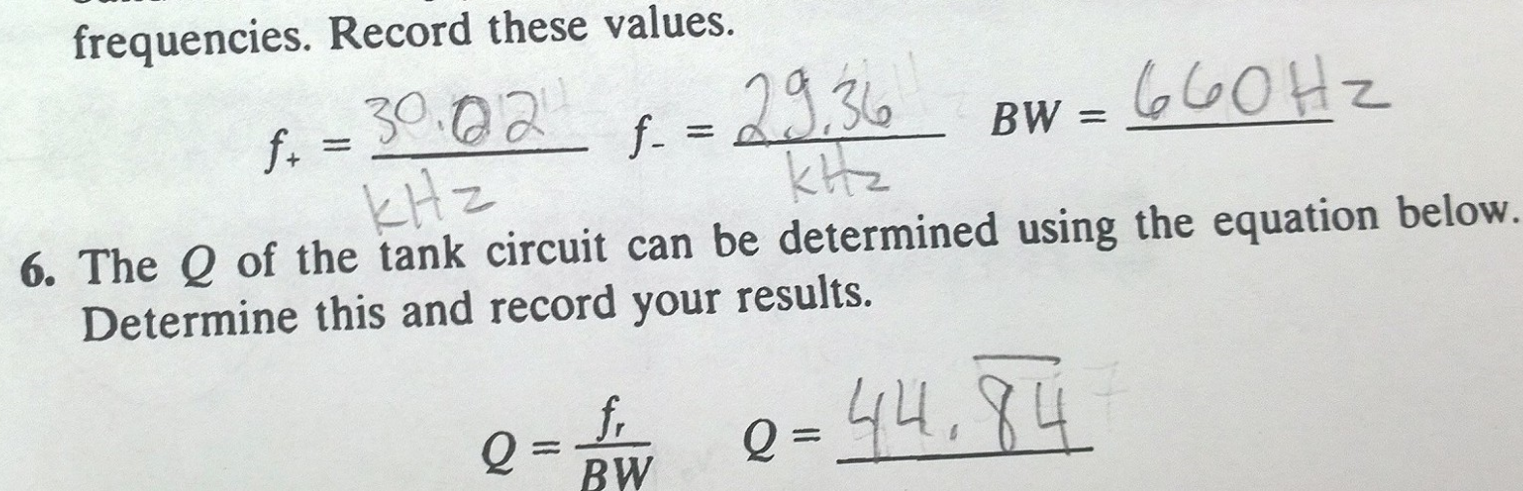 frequencies. Record these values.
f₊ = 30.02 kHz f₋ = 29.36 kHz BW = 660Hz
6. The Q of the tank circuit can be determined using the equation below.
Determine this and record your results.
Q = fᵣ/BW Q = 44.8̅4̅